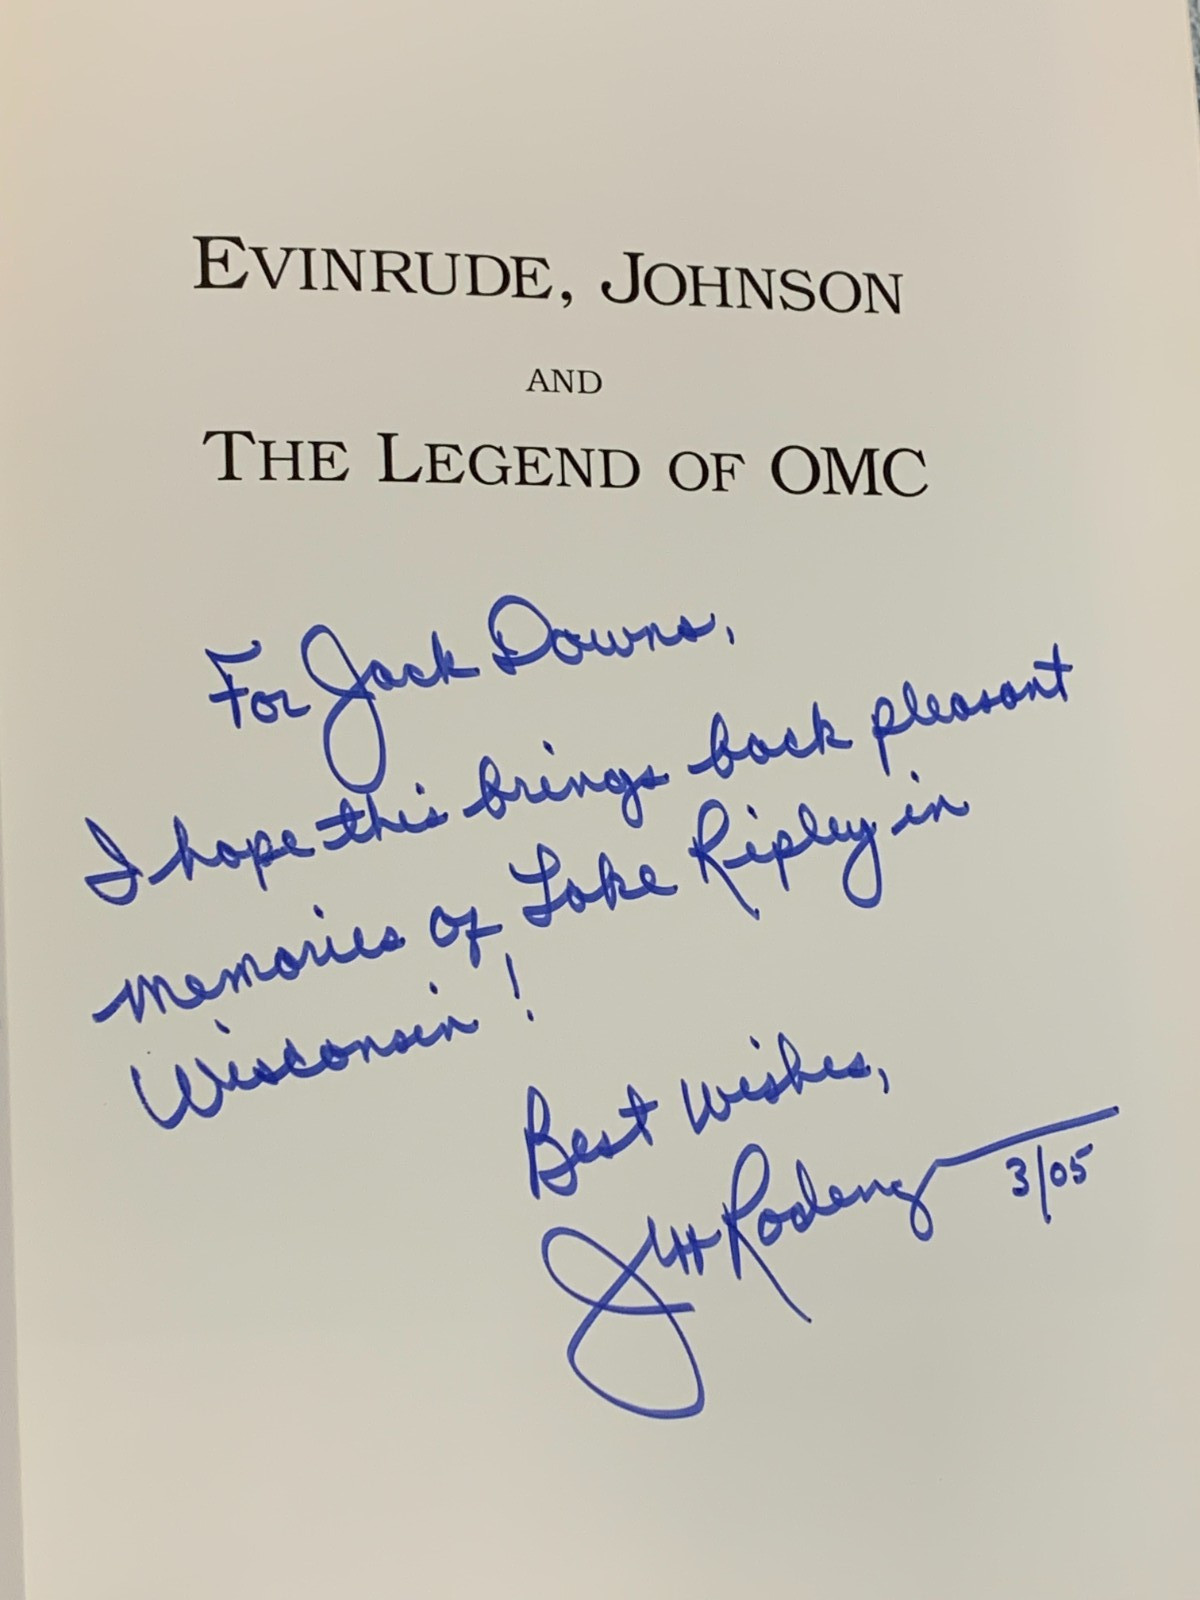 EVINRUDE, JOHNSON
AND
THE LEGEND OF OMC
For Jack Downs,
I hope this brings back pleasant
memories of Lake Ripley in
Wisconsin!
Best Wishes,
Jeff Rodengen
3/05